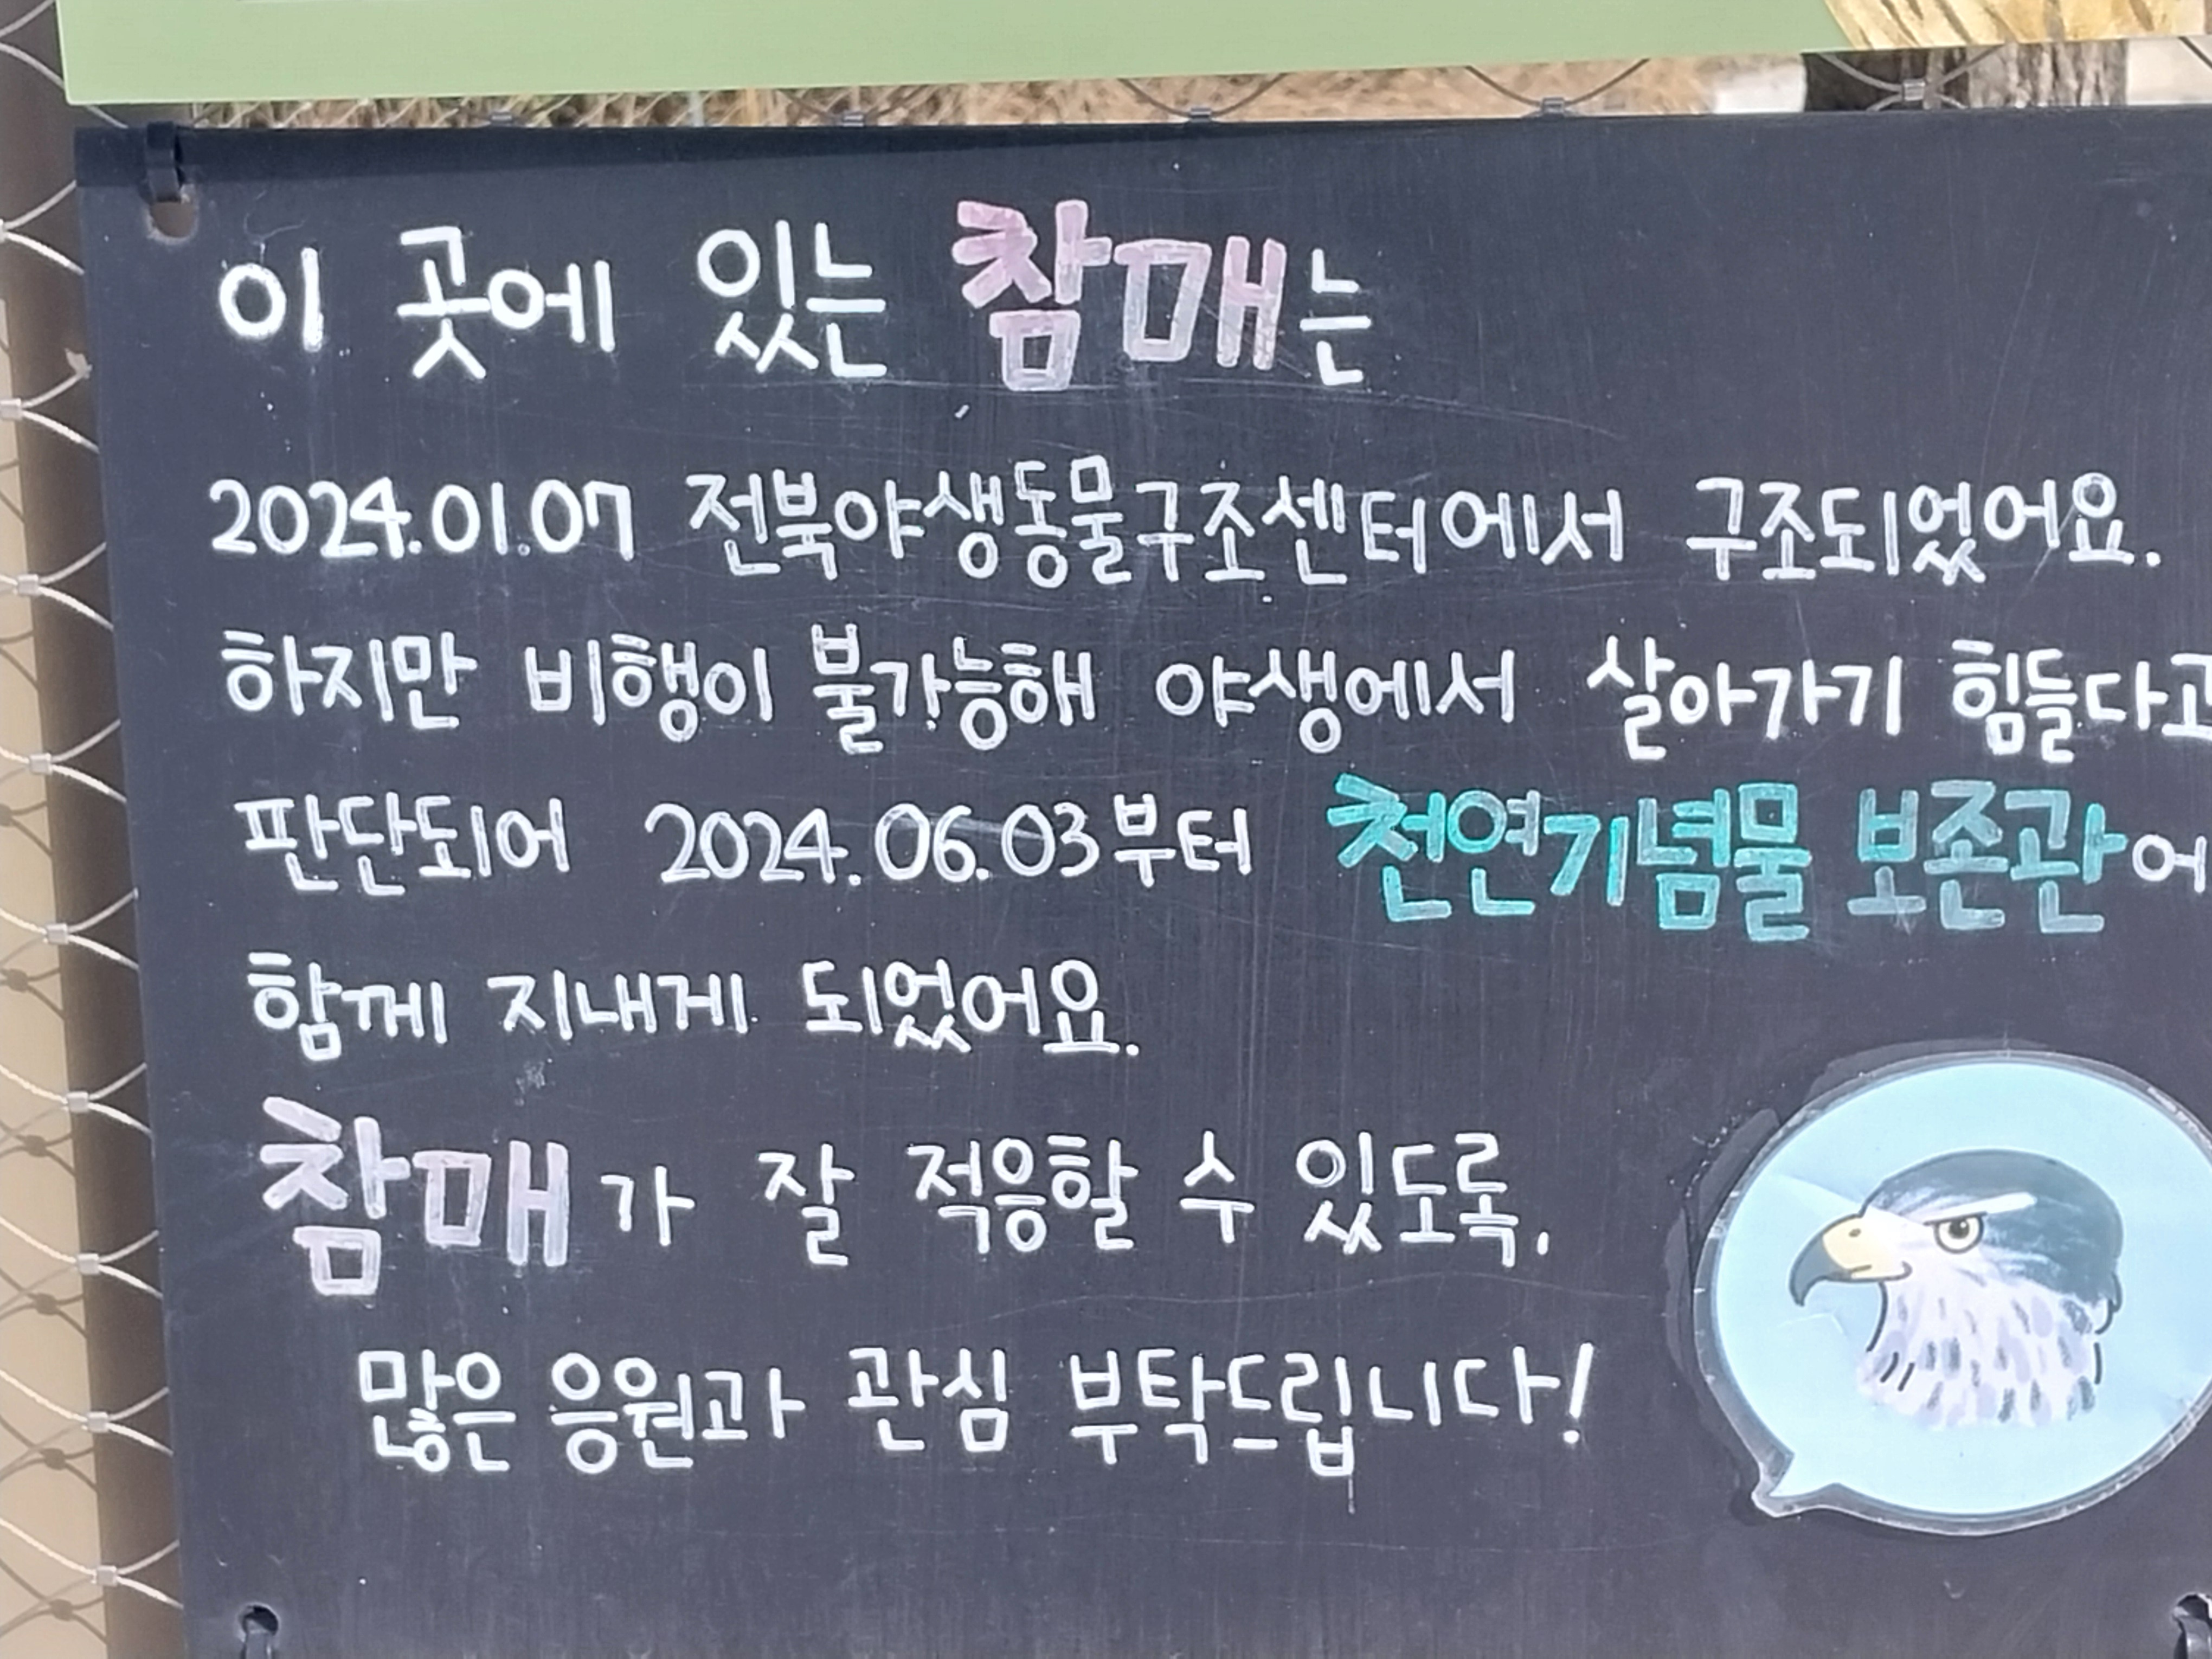 이 곳에 있는 참매는
2024.01.07 전북야생동물구조센터에서 구조되었어요.
하지만 비행이 불가능해 야생에서 살아가기 힘들다고
판단되어 2024.06.03부터 천연기념물 보존관에
함께 지내게 되었어요.
참매가 잘 적응할 수 있도록,
많은 응원과 관심 부탁드립니다!